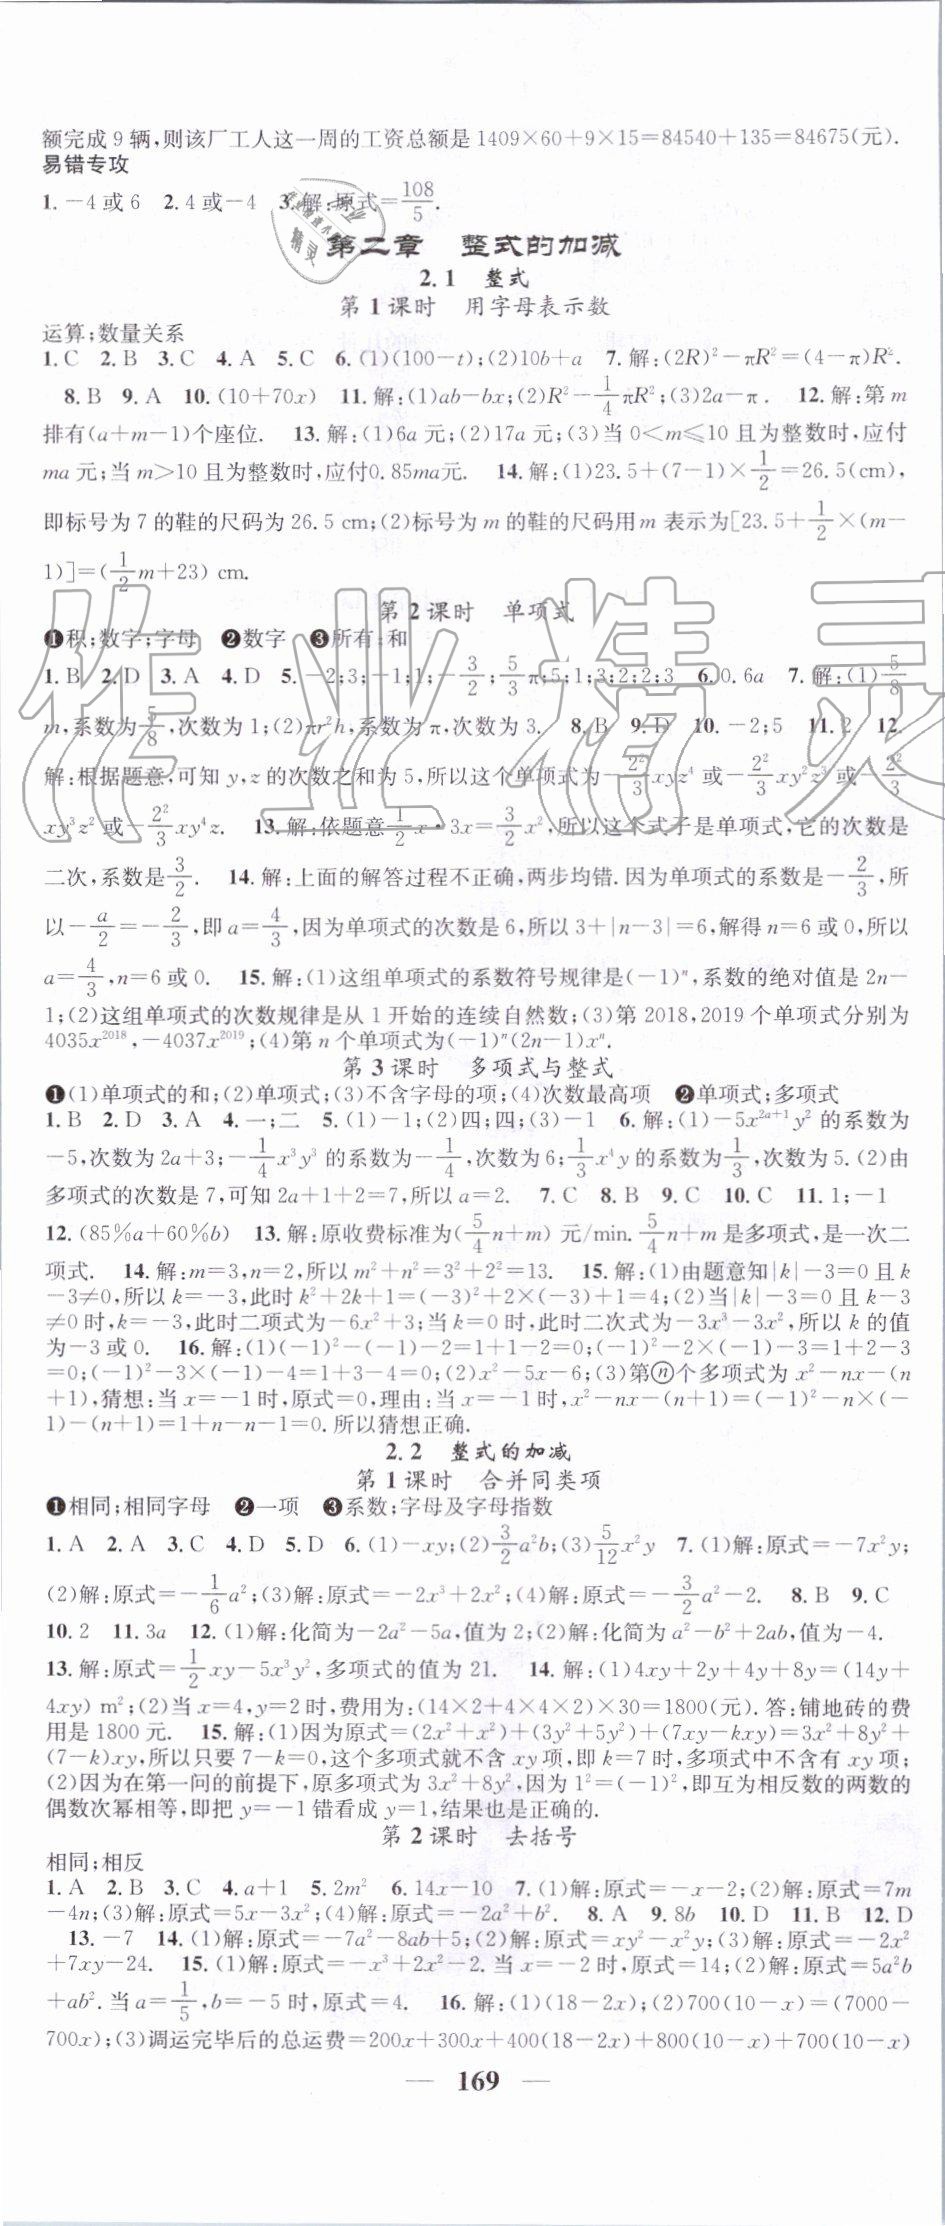 额完成9辆,则该厂工人这一周的工资总额是1409×60+9×15=84540+135=84675(元).
易错专攻
1. -4或6 2. 4或-4 3. 解:原式=108/5.
第二章 整式的加减
2.1 整式
第1课时 用字母表示数
运算;数量关系
1. C 2. B 3. C 4. A 5. C 6. (1)(100-t);(2)10b+a 7. 解:(2R)²-πR²=(4-π)R².
8. B 9. A 10. (10+70x) 11. 解:(1)ab-bx;(2)R²-1/4πR²;(3)2a-π. 12. 解:第m
排有(a+m-1)个座位. 13. 解:(1)6a元;(2)17a元;(3)当0<m≤10且为整数时,应付
ma元;当m>10且为整数时,应付0.85ma元. 14. 解:(1)23.5+(7-1)×1/2=26.5(cm),
即标号为7的鞋的尺码为26.5 cm;(2)标号为m的鞋的尺码用m表示为[23.5+1/2×(m-
1)]=(1/2m+23) cm.
第2课时 单项式
❶积;数字;字母 ❷数字 ❸所有;和
1. B 2. D 3. A 4. D 5. -2;3;-1;1;-3/2;5/3π;5;1;3;2;2;3 6. 0.6a 7. 解:(1)5/8
m,系数为5/8,次数为1;(2)πr²h,系数为π,次数为3. 8. B 9. D 10. -2;5 11. 2 12.
解:根据题意,可知y,z的次数之和为5,所以这个单项式为-2²/3xyz⁴或-2²/3xy²z³或-2²/3
xy³z²或-2²/3xy⁴z. 13. 解:依题意1/2x·3x=3/2x²,所以这个式子是单项式,它的次数是
二次,系数是3/2. 14. 解:上面的解答过程不正确,两步均错.因为单项式的系数是-2/3,所
以-a/2=-2/3,即a=4/3,因为单项式的次数是6,所以3+|n-3|=6,解得n=6或0,所以
a=4/3,n=6或0. 15. 解:(1)这组单项式的系数符号规律是(-1)ⁿ,系数的绝对值是2n-
1;(2)这组单项式的次数规律是从1开始的连续自然数;(3)第2018,2019个单项式分别为
4035x²⁰¹⁸,-4037x²⁰¹⁹;(4)第n个单项式为(-1)ⁿ(2n-1)xⁿ.
第3课时 多项式与整式
❶(1)单项式的和;(2)单项式;(3)不含字母的项;(4)次数最高项 ❷单项式;多项式
1. B 2. D 3. A 4. 一;二 5. (1)-1;(2)四;四;(3)-1 6. 解:(1)-5x²ᵃ⁺¹y²的系数为
-5,次数为2a+3;-1/4x³y³的系数为-1/4,次数为6;1/3x⁴y的系数为1/3,次数为5.(2)由
多项式的次数是7,可知2a+1+2=7,所以a=2. 7. C 8. B 9. C 10. C 11. 1;-1
12. (85%a+60%b) 13. 解:原收费标准为(5/4n+m)元/min. 5/4n+m是多项式,是一次二
项式. 14. 解:m=3,n=2,所以m²+n²=3²+2²=13. 15. 解:(1)由题意知|k|-3=0且k
-3≠0,所以k=-3,此时k²+2k+1=(-3)²+2×(-3)+1=4;(2)当|k|-3=0且k-3
≠0时,k=-3,此时二项式为-6x²+3;当k=0时,此时二次式为-3x³-3x²,所以k的值
为-3或0. 16. 解:(1)(-1)²-(-1)-2=1+1-2=0;(-1)²-2×(-1)-3=1+2-3
=0;(-1)²-3×(-1)-4=1+3-4=0;(2)x²-5x-6;(3)第ⓝ个多项式为x²-nx-(n
+1),猜想:当x=-1时,原式=0,理由:当x=-1时,x²-nx-(n+1)=(-1)²-n×(-
1)-(n+1)=1+n-n-1=0.所以猜想正确.
2.2 整式的加减
第1课时 合并同类项
❶相同;相同字母 ❷一项 ❸系数;字母及字母指数
1. A 2. A 3. C 4. D 5. D 6. (1)-xy;(2)3/2a²b;(3)5/12x²y 7. (1)解:原式=-7x²y;
(2)解:原式=-1/6a²;(3)解:原式=-2x³+2x²;(4)解:原式=-3/2a²-2. 8. B 9. C
10. 2 11. 3a 12. (1)解:化简为-2a²-5a,值为2;(2)解:化简为a²-b²+2ab,值为-4.
13. 解:原式=1/2xy-5x³y²,多项式的值为21. 14. 解:(1)4xy+2y+4y+8y=(14y+
4xy) m²;(2)当x=4,y=2时,费用为:(14×2+4×4×2)×30=1800(元).答:铺地砖的费
用是1800元. 15. 解:(1)因为原式=(2x²+x²)+(3y²+5y²)+(7xy-kxy)=3x²+8y²+
(7-k)xy,所以只要7-k=0,这个多项式就不含xy项,即k=7时,多项式中不含有xy项;
(2)因为在第一问的前提下,原多项式为3x²+8y²,因为1²=(-1)²,即互为相反数的两数的
偶数次幂相等,即把y=-1错看成y=1,结果也是正确的.
第2课时 去括号
相同;相反
1. A 2. B 3. C 4. a+1 5. 2m² 6. 14x-10 7. (1)解:原式=-x-2;(2)解:原式=7m
-4n;(3)解:原式=5x-3x²;(4)解:原式=-2a²+b². 8. A 9. 8b 10. D 11. B 12. D
13. -7 14. (1)解:原式=-7a²-8ab+5;(2)解:原式=xy²-x²y;(3)解:原式=-2x²
+7xy-24. 15. (1)解:原式=-x³+2x²-2.当x=-2时,原式=14;(2)解:原式=5a²b
+ab².当a=1/5,b=-5时,原式=4. 16. 解:(1)(18-2x);(2)700(10-x)=(7000-
700x);(3)调运完毕后的总运费=200x+300x+400(18-2x)+800(10-x)+700(10-x)
— 169 —
作业精灵